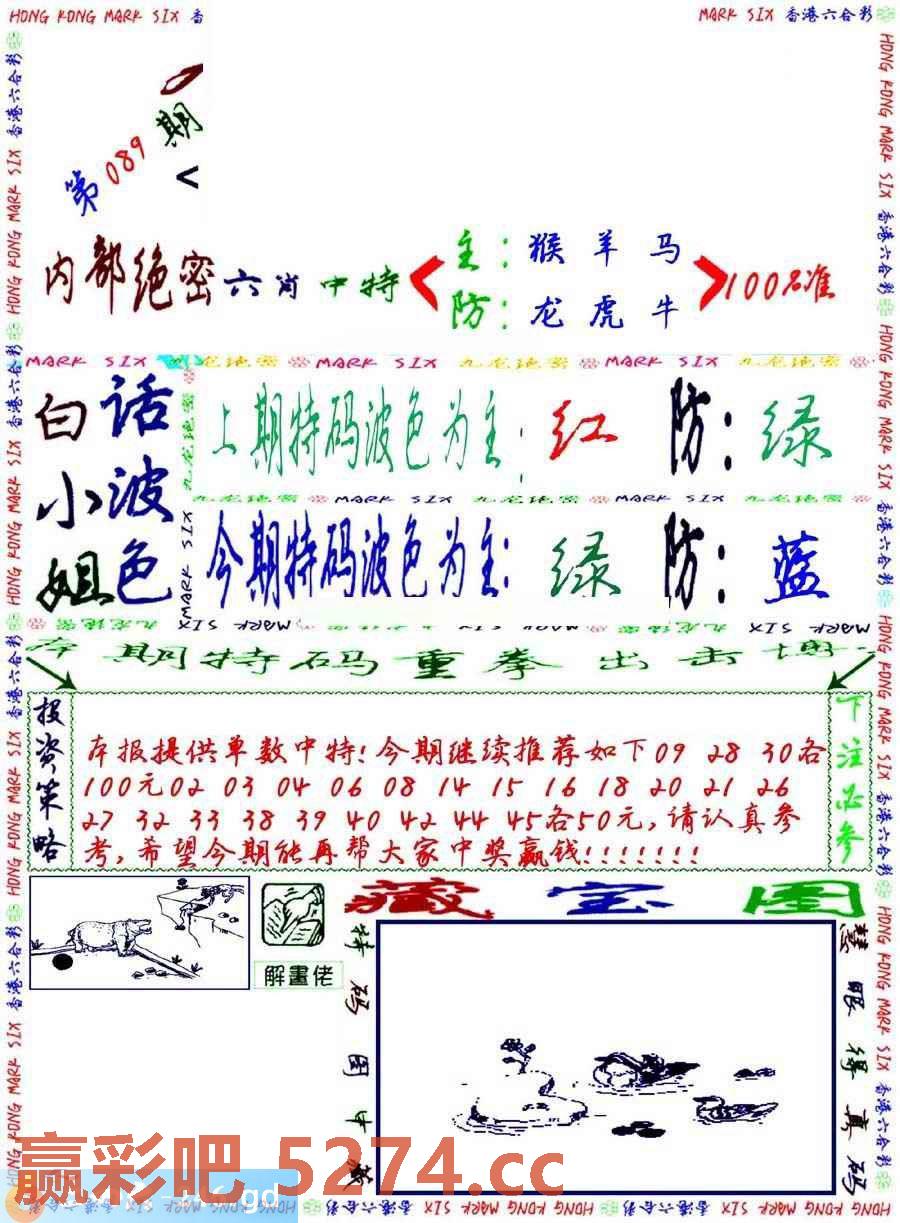 HONG KONG MARK SIX 香
MARK SIX 香港六合彩
第089期
内部绝密六肖中特
主：猴羊马
防：龙虎牛
100%准
MARK SIX 九龙绝密 MARK SIX 九龙绝密 MARK SIX 九龙绝密
白话
小波
姐色
上期特码波色为主：红 防：绿
九龙绝密 MARK SIX 九龙绝密 MARK SIX 九龙绝密
今期特码波色为主：绿 防：蓝
期特码重拳出击
投资策略
本报提供单数中特！今期继续推荐如下09 28 30各
100元02 03 04 06 08 14 15 16 18 20 21 26
27 32 33 38 39 40 42 44 45各50元，请认真参
考，希望今期能再帮大家中奖赢钱！！！！！！！
下注必参
解畫佬
藏宝图
特码图中藏
慧眼得真码
赢彩吧 5274.cc
HONG KONG MARK SIX 香港六合彩